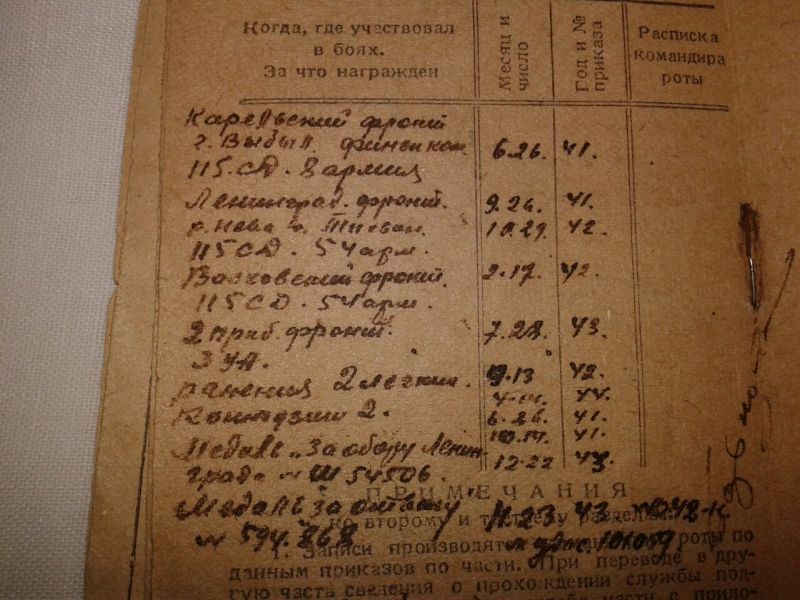 Когда, где участвовал
в боях.
За что награжден
Месяц и
число
Год и №
приказа
Расписка
командира
роты
Карельский фронт
г. Выбыл.
6.26. 41.
115.СД. 8 армия
Ленинград. фронт. 9.26. 41.
р. Нева 10.29. 42.
115 СД. 54 арм.
Волховский фронт. 2.17. 42.
115 СД. 54 арм.
2 приб. фронт. 7.28. 43.
3 УА.
ранения 2 легких. 9.13 42.
44.
Контузии 2. 6.26. 41.
10.14. 41.
Медаль „За обору Ленин-
12.22 43.
града" Ш 54506.
ПРИМЕЧАНИЯ
Медаль за отвагу 11.23. 43
ко второму и третьему разделам.
№ 594.868
1. Записи производятся командиром роты по
данным приказов по части. При переводе в дру-
гую часть сведения о прохождении службы под-
части с прило-